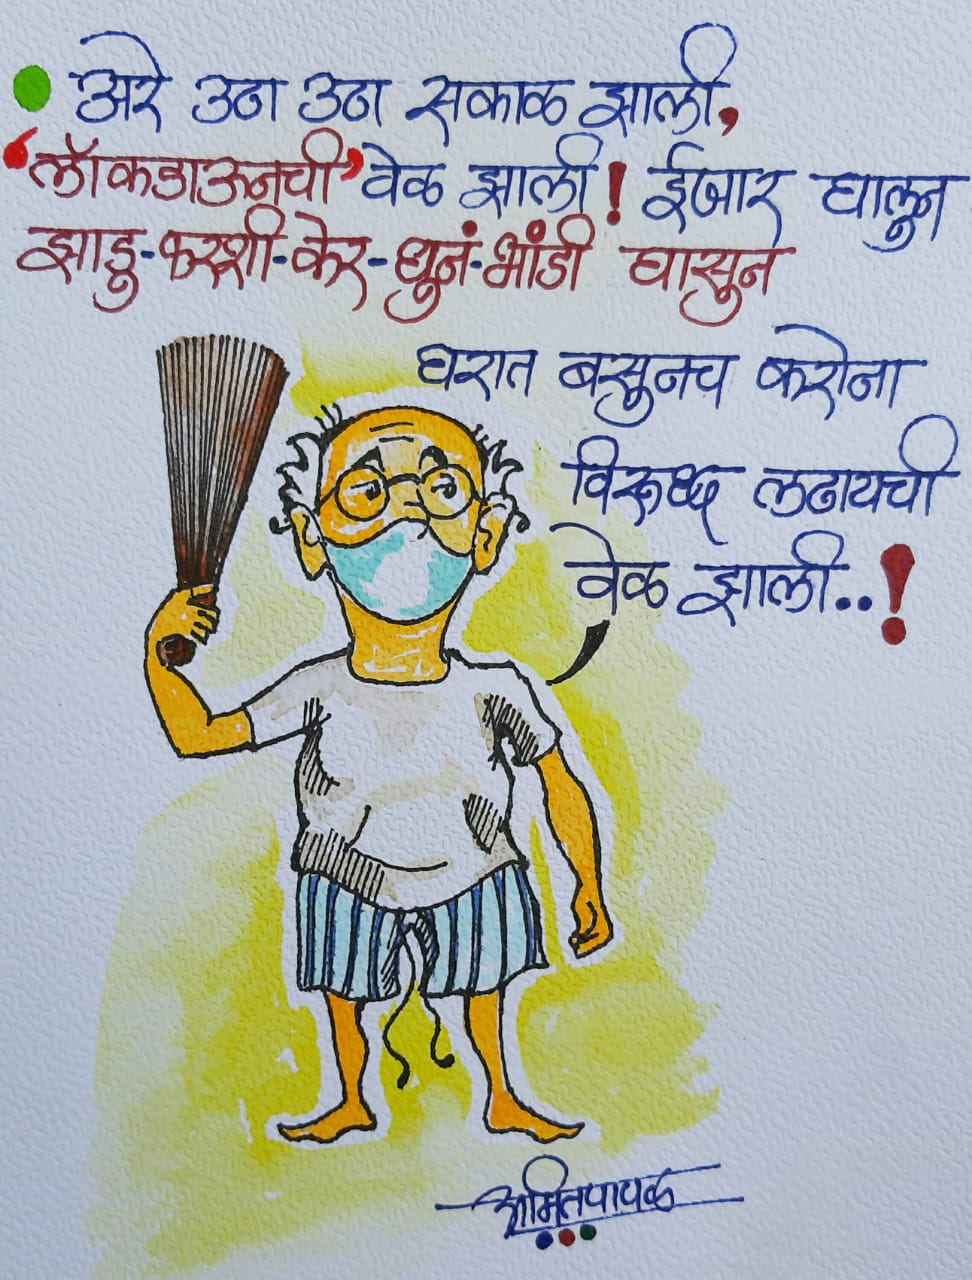 अरे उठा उठा सकाळ झाली,
'लॉकडाऊनची' वेळ झाली! ईजार घालुन
झाडु-फरशी-केर-धुनं-भांडी घासुन
घरात बसुनच करोना
विरूध्द लढायची
वेळ झाली..!
अमितपापळ